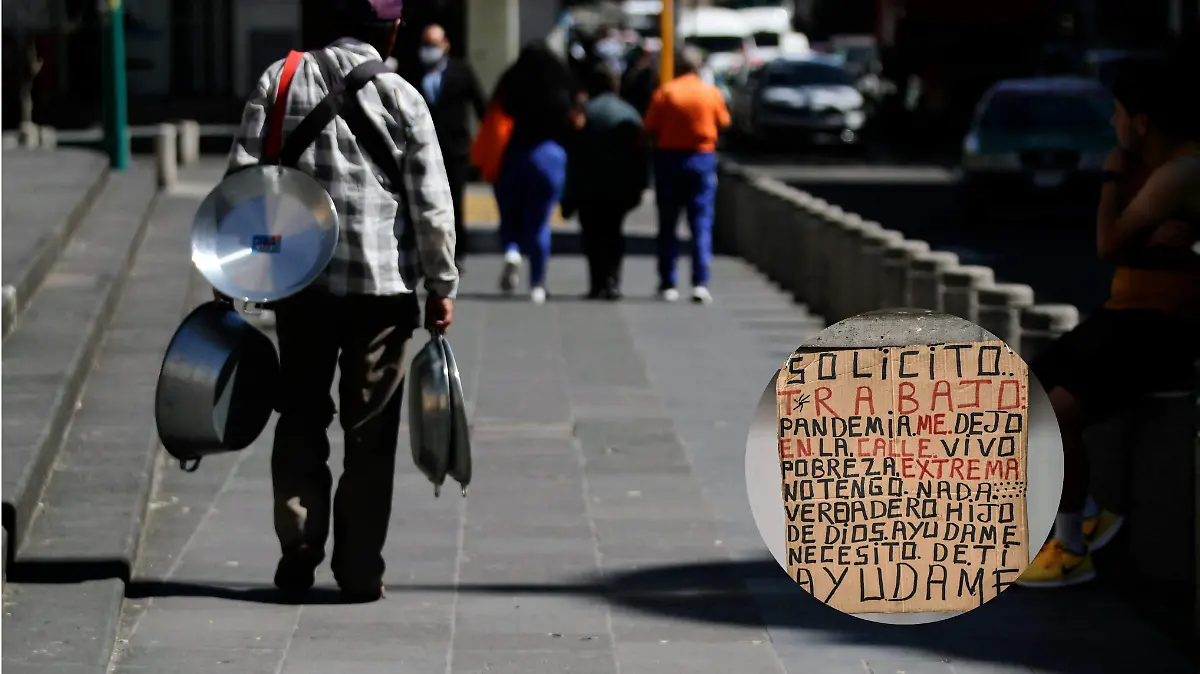 SOLICITO..
TRABAJO:
PANDEMIA.ME.DEJO
EN.LA.CALLE.VIVO
POBREZA.EXTREMA
NO TENGO.NADA.
VERDADERO HIJO
DE DIOS.AYUDAME
NECESITO. DE TI
AYUDAME